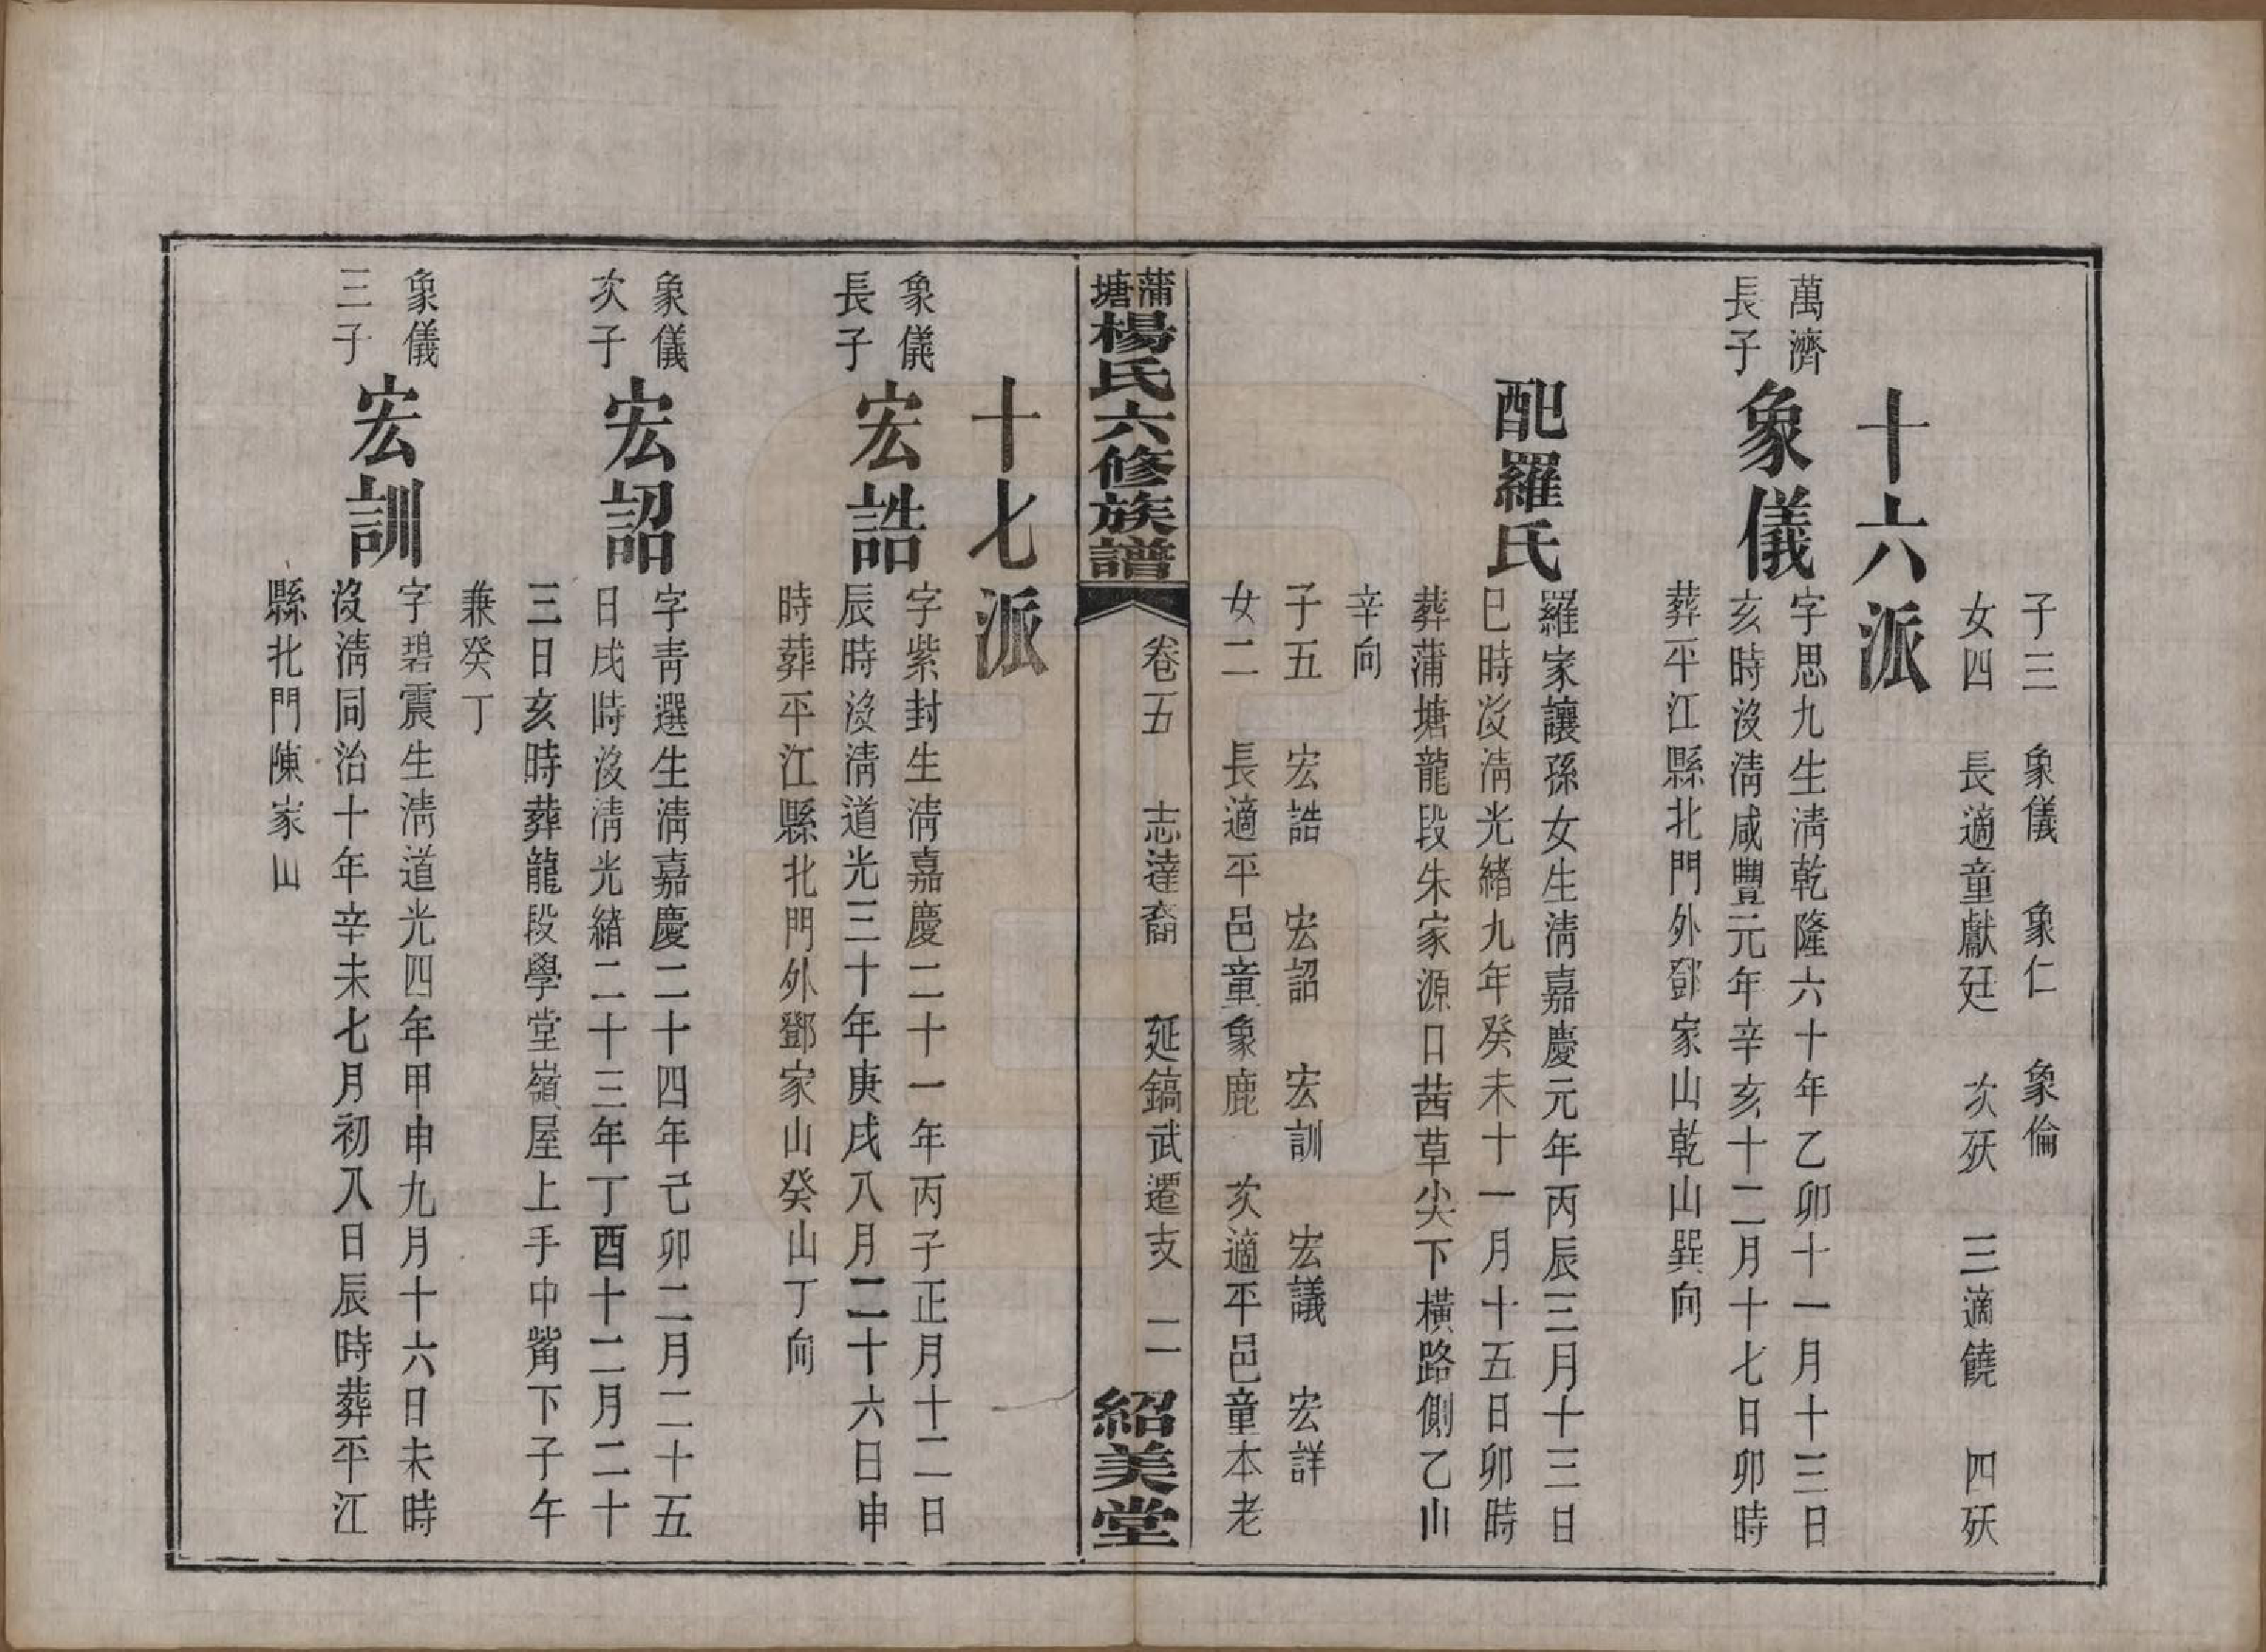 子三　象儀　象仁　象倫
女四　長適童獻廷　次殀　三適饒　四殀
十六派
萬濟
長子
象儀
字思九生清乾隆六十年乙卯十一月十三日
亥時沒清咸豐元年辛亥十二月十七日卯時
葬平江縣北門外鄧家山乾山巽向
配羅氏
羅家讓孫女生清嘉慶元年丙辰三月十三日
巳時沒清光緒九年癸未十一月十五日卯時
葬蒲塘龍段朱家源口茜草尖下橫路側乙山
辛向
子五　宏誥　宏詔　宏訓　宏議　宏詳
女二　長適平邑童象鹿　次適平邑童本老
蒲塘楊氏六修族譜
卷五　志達裔　延鎬武遷支　二
紹美堂
十七派
象儀
長子
宏誥
字紫封生清嘉慶二十一年丙子正月十二日
辰時沒清道光三十年庚戌八月二十六日申
時葬平江縣北門外鄧家山癸山丁向
象儀
次子
宏詔
字靑選生清嘉慶二十四年己卯二月二十五
日戌時沒清光緒二十三年丁酉十二月二十
三日亥時葬龍段學堂嶺屋上手中嘴下子午
兼癸丁
象儀
三子
宏訓
字碧震生清道光四年甲申九月十六日未時
沒清同治十年辛未七月初八日辰時葬平江
縣北門陳家山